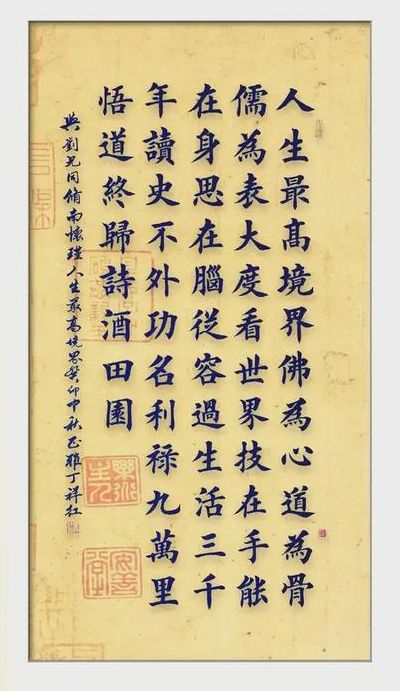 人生最高境界佛為心道為骨
儒為表大度看世界技在手能
在身思在腦從容過生活三千
年讀史不外功名利祿九萬里
悟道終歸詩酒田園
與劉兄同脩南懷瑾人生最高境界癸卯中秋正雅丁祥红